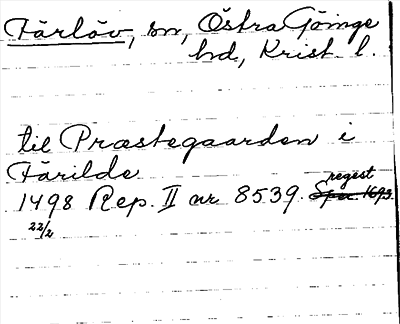 Färlöv, sn, Östra Göinge
hd, Krist. l.
til Præstegaarden i
Färilde
1498 Rep. II nr 8539. regest
22/2